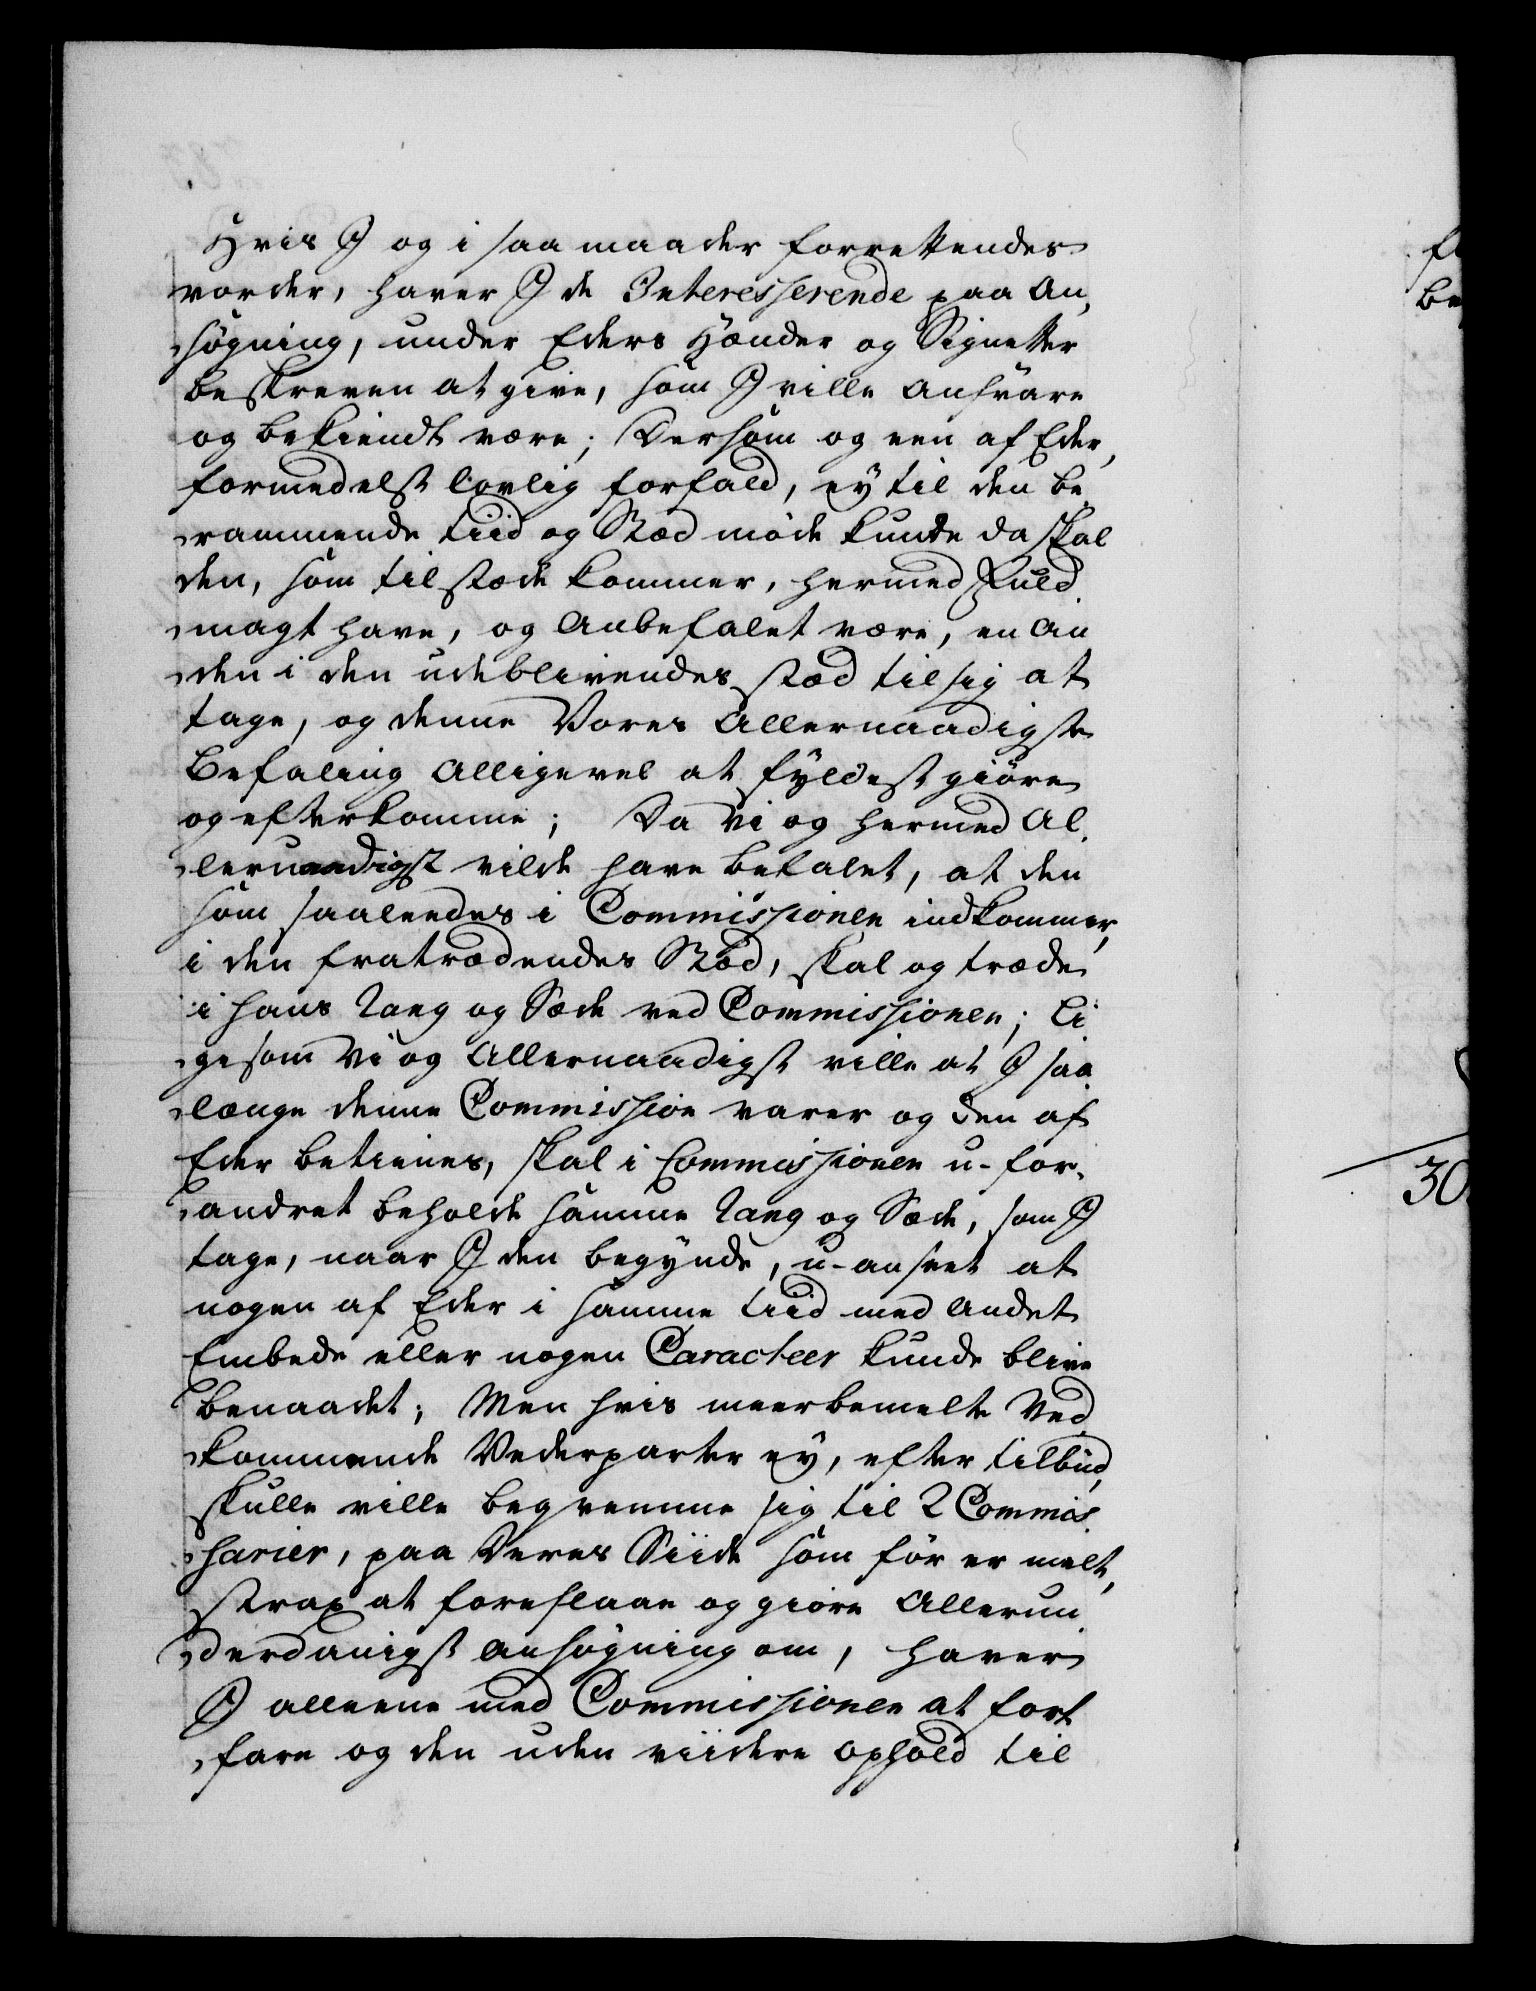 Hvis I og i saa maader forrettendes
vorder, haver I de Interesserende paa An-
søgning, under Eders Hænder og Signetter
beskreven at give, som I ville ansvare
og bekiendt være; Dersom og een af Eder,
formedelst lovlig forfald, ey til den be
rammende tiid og Stæd møde kunde da skal
den, som tilstæde kommer, hermed Fuld
magt have, og Anbefalet være, en An
den i den udeblivendes stæd til sig at
tage, og denne Vores Allernaadigste
Befaling Alligevel at fyldestgiøre
og efterkomme; Da Vi og hermed Al
lernaadigst vilde have befalet, at den
som saaleedes i Commissionen indkommer,
i den fratrædendes Stæd, skal og træde
i hans Rang og Sæde ved Commissionen; Li
gesom Vi og Allernaadigst ville at I saa
længe denne Commission varer og den af
Eder betienes, skal i Commissionen u-for-
andret beholde samme Rang og Sæde, som I
tage, naar I den begynde, u-anseet at
nogen af Eder i samme tiid med Andet
Embede eller nogen Caracteer kunde blive
benaadet; Men hvis meerbemelte Ved
kommende Vederparter ey, efter tilbud,
skulle ville beqvemme sig til 2 Commis
sarier, paa Deres Siide som før er melt,
strax at foreslaae og giøre Allerun
derdanigst ansøgning om, haver
I alleene med Commissionen at fort
fare og den uden viidere ophold til
30